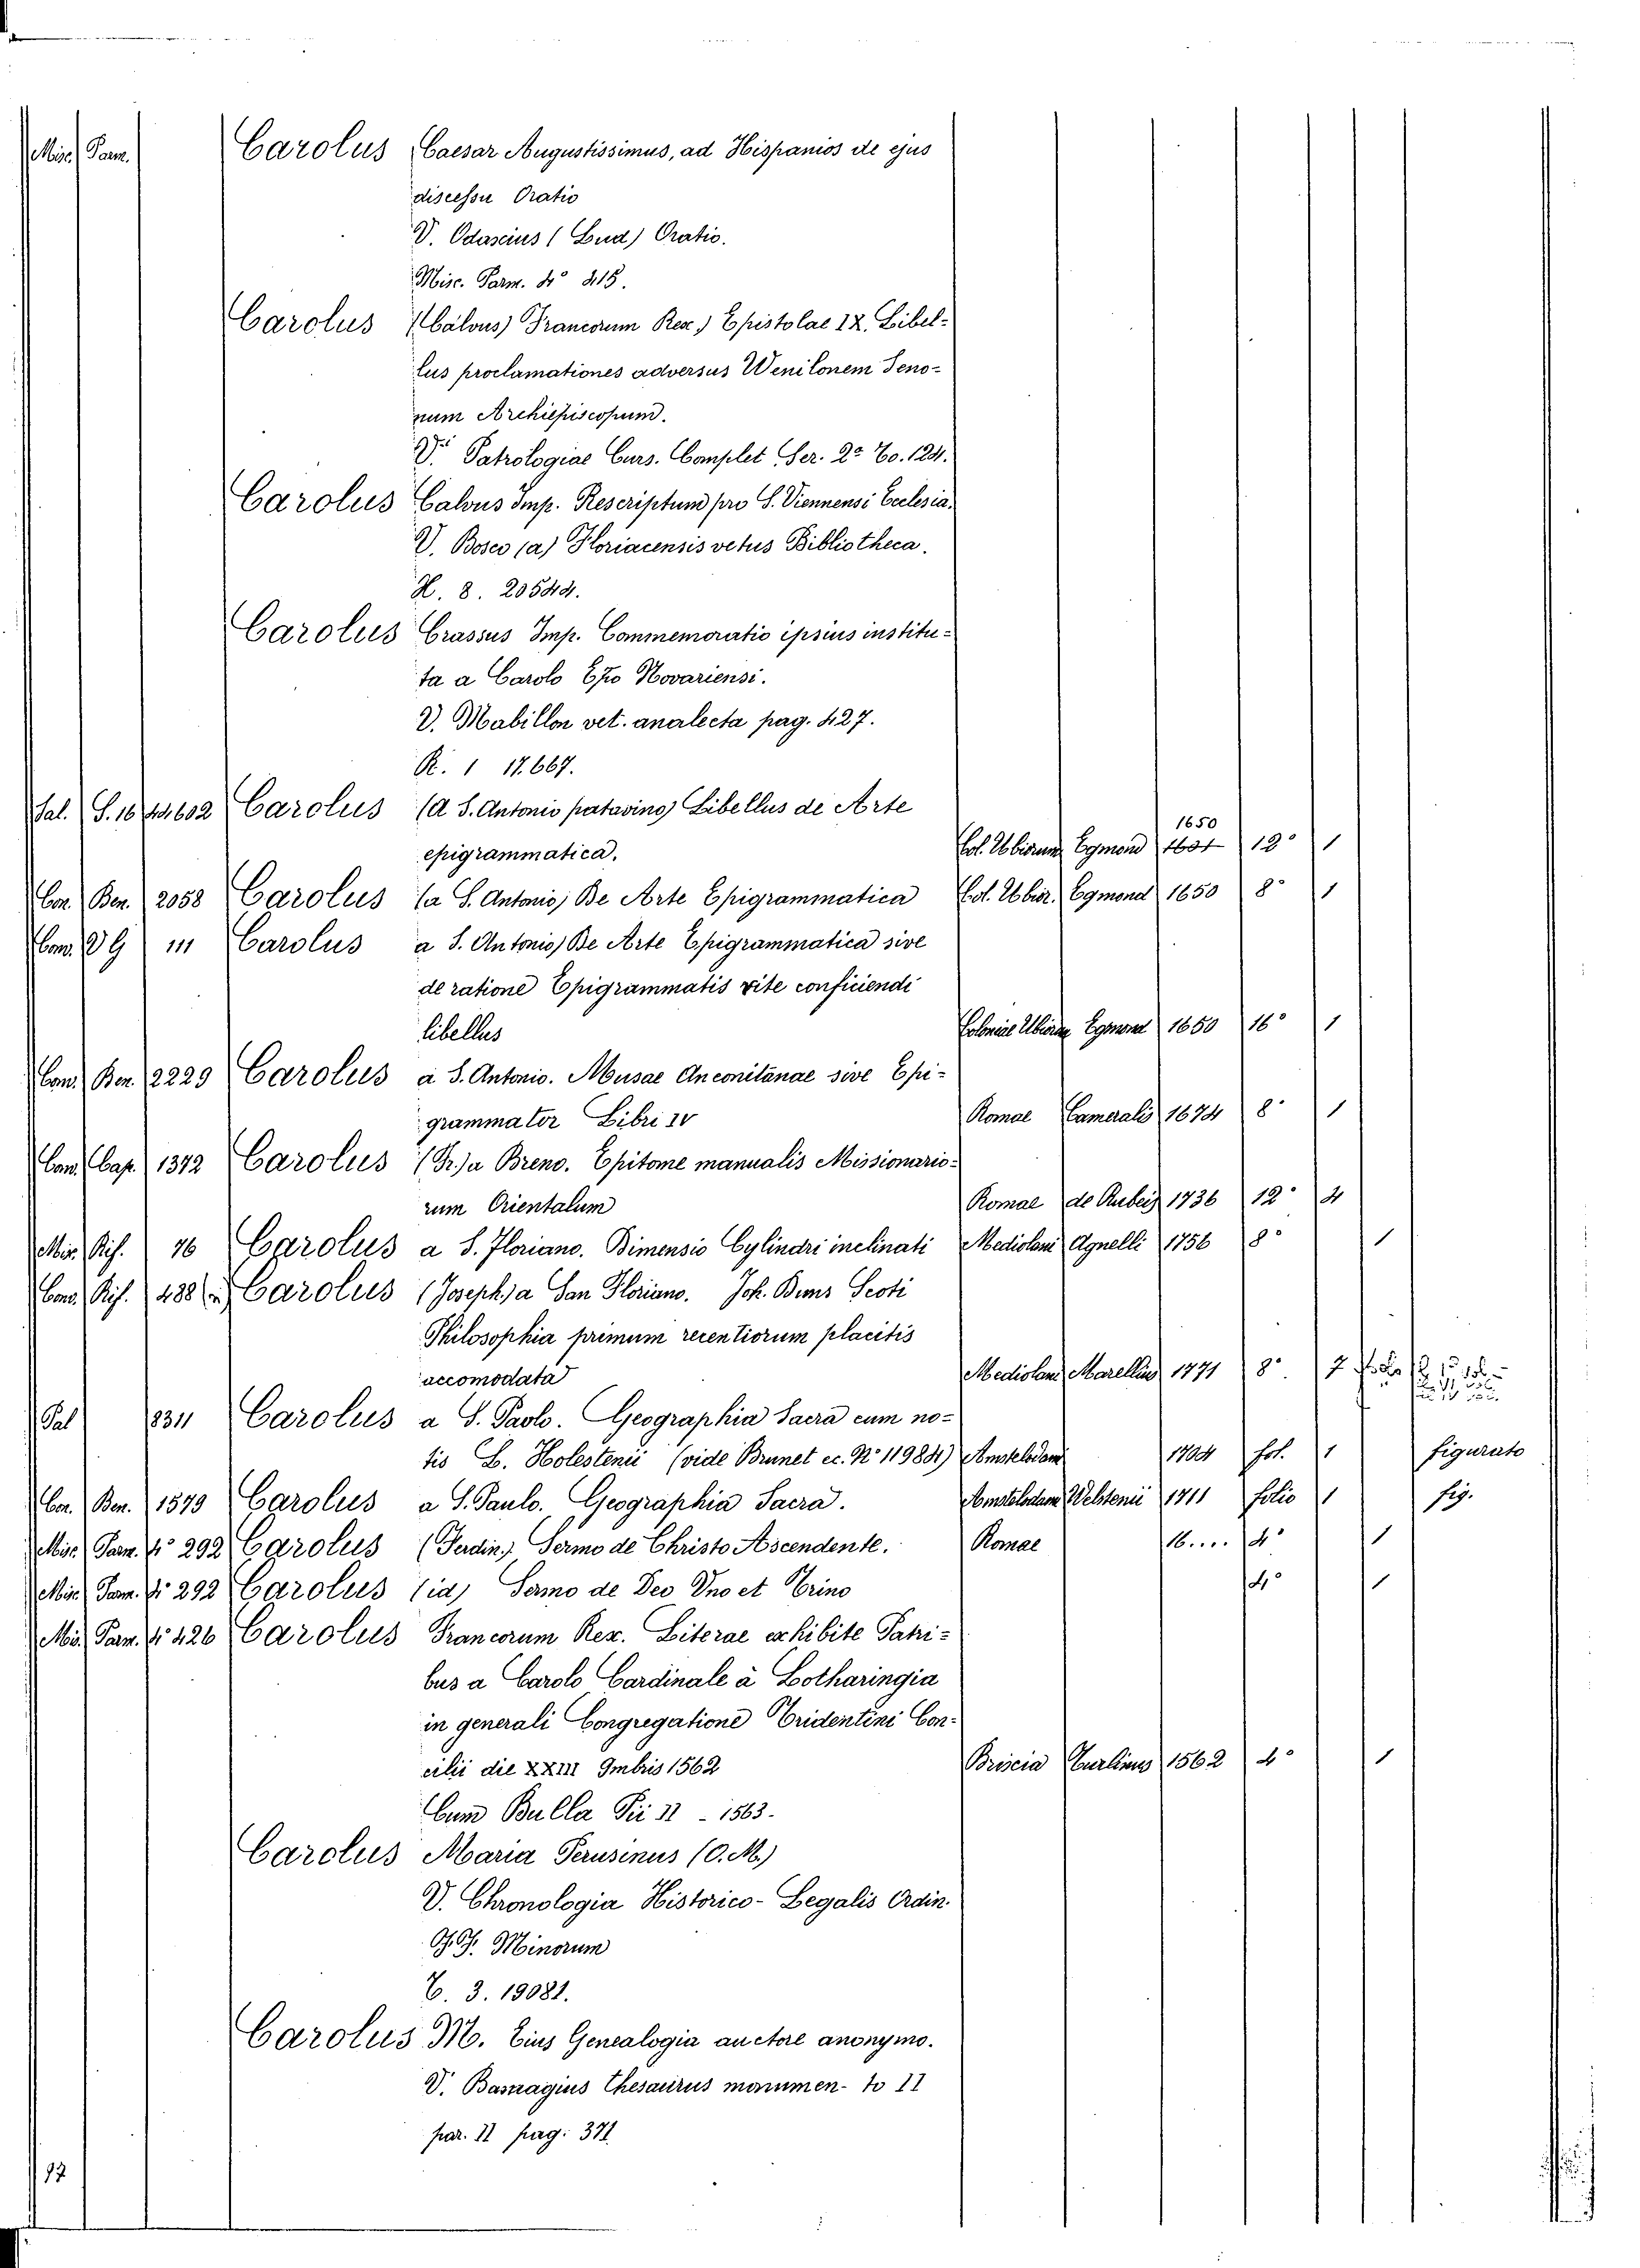 Misc. Parm. Carolus Caesar Augustissimus, ad Hispanios de ejus
discessu Oratio
V. Odascius (Lud) Oratio.
Misc. Parm. 4° 415.
Carolus (Calvus) Francorum Rex) Epistolae IX. Libel-
lus proclamationes adversus Wenilonem Seno-
num Archiepiscopum.
V. Patrologiae Curs. Complet Ser. 2a To. 124.
Carolus Calvus Imp. Rescriptum pro S. Viennensi Ecclesia.
V. Bosco (a) Floriacensis vetus Bibliotheca.
H. 8. 20544.
Carolus Crassus Imp. Commemoratio ipsius institu-
ta a Carolo Epo Novariensi.
V. Mabillon vet. analecta pag. 427.
R. 1 17.667.
Pal. S. 16 44,602 Carolus (A S. Antonio patavino) Libellus de Arte
epigrammatica. Col. Ubiorum Egmond 1650 12° 1
Con. Ben. 2058 Carolus (a S. Antonio) De Arte Epigrammatica Col. Ubior. Egmond 1650 8° 1
Com. D G 111 Carolus a S. Antonio) De Arte Epigrammatica sive
de ratione Epigrammatis rite conficiendi
libellus Coloniae Ubiorum Egmond 1650 16° 1
Con. Ben. 2229 Carolus a S. Antonio. Musae Anconitanae sive Epi-
grammator Libri IV Romae Cameralis 1674 8° 1
Con. Cap. 1372 Carolus (Fr.) a Breno. Epitome manualis Missionario-
rum Orientalum Romae de Rubeis 1736 12° 4
Misc. Rif. 76 Carolus a S. Floriano. Dimensio Cylindri inclinati Mediolani Agnelli 1756 8° 1
Cons. Rif. 488 Carolus (Joseph) a San Floriano. Joh. Duns Scoti
Philosophia primum recentiorum placitis
accomodata Mediolani Marellius 1771 8° 7
Pal 8311 Carolus a S. Paolo. Geographia Sacra cum no-
tis L. Holestenii (vide Brunet ec. N° 11984) Amstelodami 1704 fol. 1 figurato
Con. Ben. 1579 Carolus a S. Paulo. Geographia Sacra. Amstelodami Welstenii 1711 folio 1 fig.
Misc. Parm. 4° 292 Carolus (Ferdin.) Sermo de Christo Ascendente. Romae 16.... 4° 1
Misc. Parm. 4° 292 Carolus (id) Sermo de Deo Uno et Trino 4° 1
Mis. Parm. 4° 426 Carolus Francorum Rex. Literae exhibite Patri-
bus a Carolo Cardinale à Lotharingia
in generali Congregatione Tridentini Con-
cilii die XXIII 9mbris 1562 Briscia Turlinus 1562 4° 1
Cum Bulla Pii II - 1563.
Carolus Maria Perusinus (O.M.)
V. Chronologia Historico-Legalis Ordin.
F.F. Minorum
C. 3. 19081.
Carolus M. Eius Genealogia auctore anonymo.
V. Basnagius Thesaurus monumen- to II
par. II pag. 371.
97